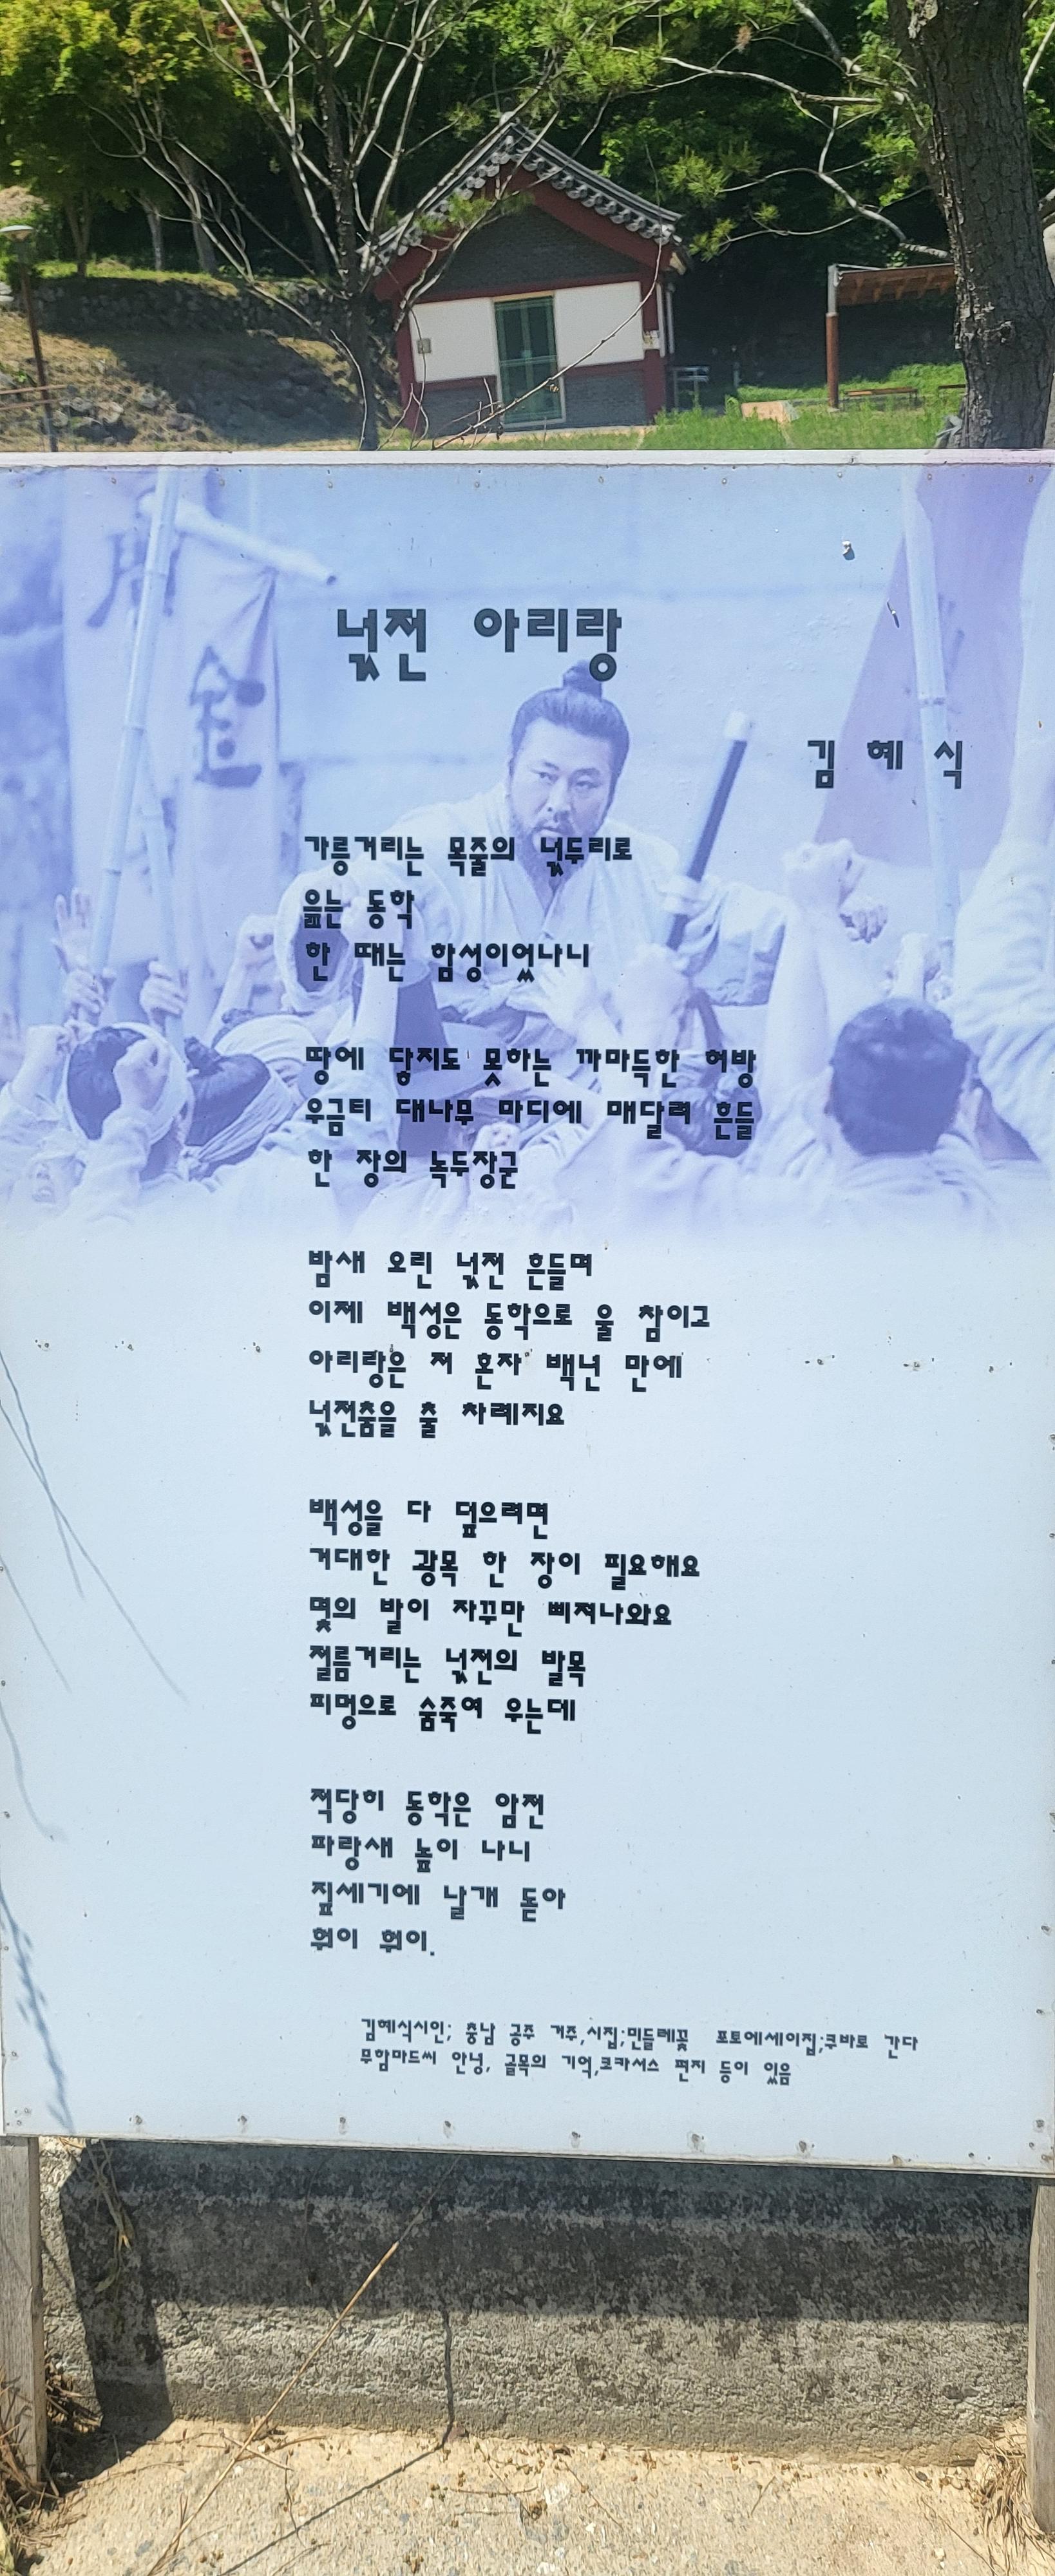 넋전 아리랑
김 혜 식
가릉거리는 목줄의 넋두리로
읊는 동학
한 때는 함성이었나니
땅에 닿지도 못하는 까마득한 허방
우금티 대나무 마디에 매달려 흔들
한 장의 녹두장군
밤새 오린 넋전 흔들며
이제 백성은 동학으로 울 참이고
아리랑은 저 혼자 백년 만에
넋전춤을 출 차례지요
백성을 다 덮으려면
거대한 광목 한 장이 필요해요
몇의 발이 자꾸만 삐져나와요
절름거리는 넋전의 발목
피멍으로 숨죽여 우는데
적당히 동학은 암전
파랑새 높이 나니
짚세기에 날개 돋아
훠이 훠이.
김혜식시인; 충남 공주 거주,시집;민들레꽃 포토에세이집;쿠바로 간다
무함마드씨 안녕, 골목의 기억,코카서스 편지 등이 있음